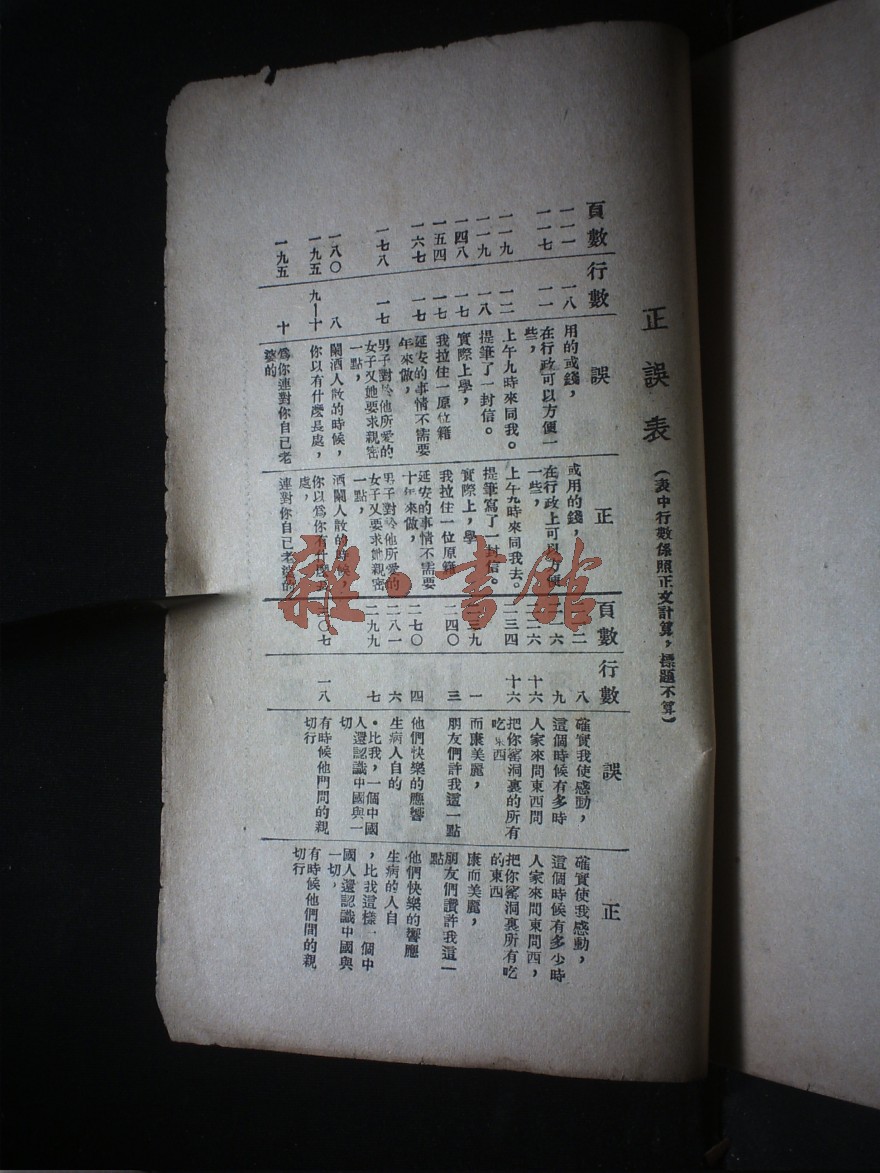 正誤表(表中行數係照正文計算,標題不算)
頁數 行數 誤 正
一一一 一八 用的或錢, 或用的錢,
一一七 一一 在行政可以方便一些, 在行政上可以方便一些,
一一九 一二 上午九時來同我。 上午九時來同我去。
一一九 一八 提筆了一封信。 提筆寫了一封信。
一四八 一七 實際上學, 實際上,學
一五四 一七 我拉住一原位籍 我拉住一位原籍
一六七 一七 延安的事情不需要年來做, 延安的事情不需要十年來做,
一七八 一七 男子對於他所愛的女子又她要求親密一點, 男子對於他所愛的女子又要求她親密一點,
一八〇 八 闌酒人散的時候, 酒闌人散的時候,
一九五 九—十 你以有什麼長處, 你以爲你有什麼長處,
一九五 十 爲你連對你自已老婆的 連對你自己老婆的
頁數 行數 誤 正
八 確實我使感動, 確實使我感動,
九 這個時候有多時 這個時候有多少時
二二六 十六 人家來問東西問 人家來問東問西,
二三四 十六 把你窰洞裏的所有吃東西 把你窰洞裏所有吃的東西
二三九 一 而康美麗, 康而美麗,
二四〇 三 朋友們許我這一點 朋友們讚許我這一點
二七〇 四 他們快樂的應響 他們快樂的響應
二八一 六 生病人自的 生病的人自
二九九 七 。比我,一個中國人還認識中國與一切 ,比我這樣一個中國人還認識中國與一切,
三〇七 一八 有時候他門間的親切行 有時候他們間的親切行
雜·書館